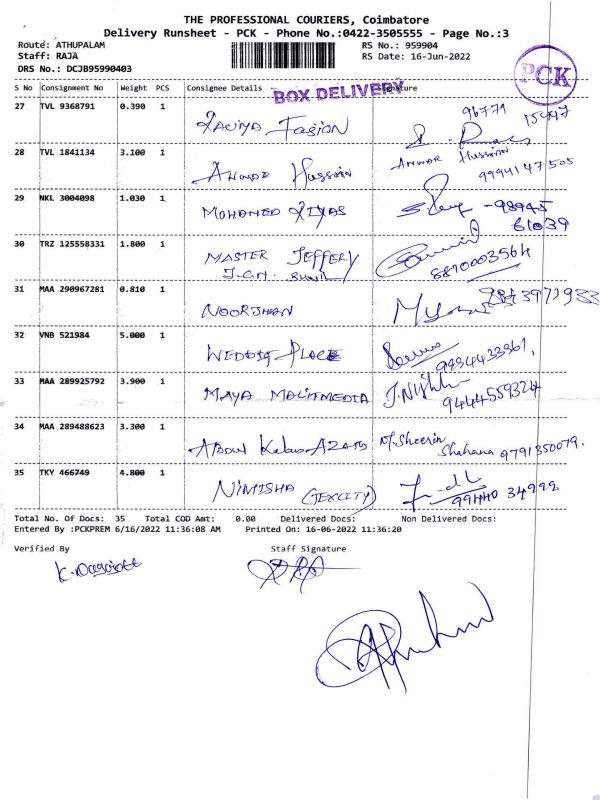 THE PROFESSIONAL COURIERS, Coimbatore
Delivery Runsheet - PCK - Phone No.:0422-3505555 - Page No.:3
Route: ATHUPALAM RS No.: 959904
Staff: RAJA RS Date: 16-Jun-2022
DRS No.: DCJB95990403
PCK
S No Consignment No Weight PCS Consignee Details Signature
BOX DELIVERY
27 TVL 9368791 0.390 1 Fasion 96779
28 TVL 1841134 3.100 1 Anwar Hussain Anwar Hussain 9994147505
29 NKL 3004098 1.030 1 MOHAMED RIYAS 98945
61039
30 TRZ 125558331 1.800 1 MASTER JEFFERY 8870003564
31 MAA 290967281 0.810 1 NOORJHAN
32 VNB 521984 5.000 1 WEDDIG PLACE
33 MAA 289925792 3.900 1 MAYA MALITMEDIA 9444559324
34 MAA 289488623 3.300 1 ABDUL Kalam AZAD M. Sheerin
Shahana 9791350079.
35 TKY 466749 4.800 1 NIMISHA (TEXCITY) 99440 34992
Total No. Of Docs: 35 Total COD Amt: 0.00 Delivered Docs: Non Delivered Docs:
Entered By :PCKPREM 6/16/2022 11:36:08 AM Printed On: 16-06-2022 11:36:20
Verified By Staff Signature